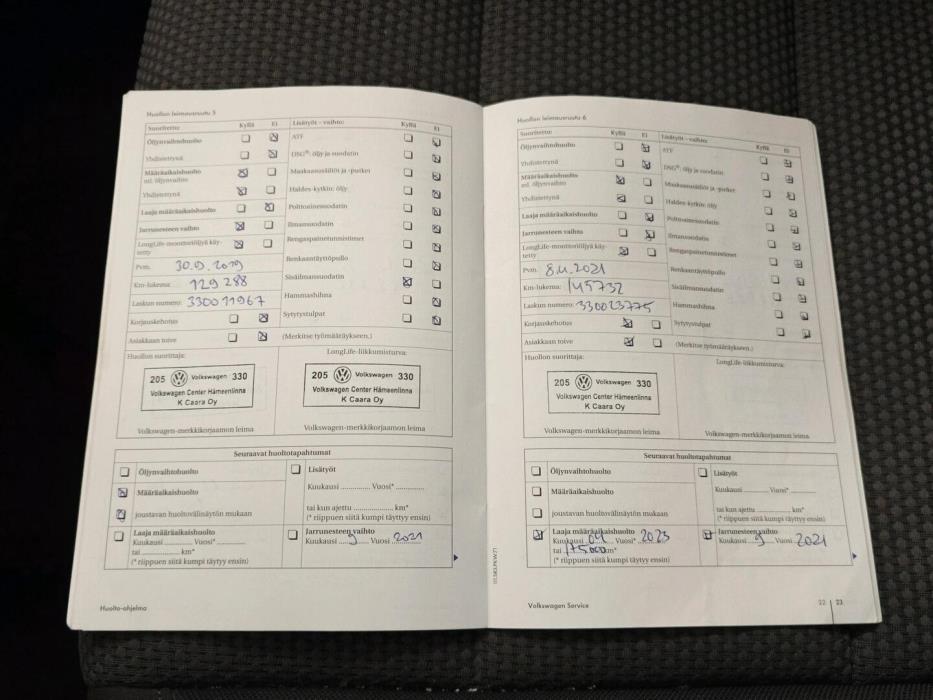 Huollon leimavaruutu 5
Suoritettu: Kyllä Ei
Öljynvaihtohuolto
Yhdistettynä
Määräaikaishuolto
ml. öljynvaihto
Yhdistettynä
Laaja määräaikaishuolto
Jarrunesteen vaihto
LongLife-moottoriöljyä käy-
tetty
Pvm. 30.9.2019
Km-lukema: 129 288
Laskun numero: 330011967
Korjauskehotus
Asiakkaan toive
Lisätyöt – vaihto: Kyllä Ei
ATF
DSG®: öljy ja suodatin
Maakaasusäiliöt ja -putket
Haldex-kytkin: öljy
Polttoainesuodatin
Ilmansuodatin
Rengaspainetunnistimet
Renkaantäyttöpullo
Sisäilmansuodatin
Hammashihna
Sytytystulpat
(Merkitse työmääräykseen.)
Huollon suorittaja:
205 Volkswagen 330
Volkswagen Center Hämeenlinna
K Caara Oy
Volkswagen-merkkikorjaamon leima
LongLife-liikkumisturva:
205 Volkswagen 330
Volkswagen Center Hämeenlinna
K Caara Oy
Volkswagen-merkkikorjaamon leima
Seuraavat huoltotapahtumat
Öljynvaihtohuolto
Määräaikaishuolto
joustavan huoltovälinäytön mukaan
Laaja määräaikaishuolto
Kuukausi ........ Vuosi* ........
tai ........ km*
(* riippuen siitä kumpi täyttyy ensin)
Lisätyöt
Kuukausi ........ Vuosi* ........
tai kun ajettu ........ km*
(* riippuen siitä kumpi täyttyy ensin)
Jarrunesteen vaihto
Kuukausi 9 Vuosi 2021
Huolto-ohjelma
Huollon leimavaruutu 6
Suoritettu: Kyllä Ei
Öljynvaihtohuolto
Yhdistettynä
Määräaikaishuolto
ml. öljynvaihto
Yhdistettynä
Laaja määräaikaishuolto
Jarrunesteen vaihto
LongLife-moottoriöljyä käy-
tetty
Pvm. 8.4.2021
Km-lukema: 145732
Laskun numero: 330023775
Korjauskehotus
Asiakkaan toive
Lisätyöt – vaihto: Kyllä Ei
ATF
DSG®: öljy ja suodatin
Maakaasusäiliöt ja -putket
Haldex-kytkin: öljy
Polttoainesuodatin
Ilmansuodatin
Rengaspainetunnistimet
Renkaantäyttöpullo
Sisäilmansuodatin
Hammashihna
Sytytystulpat
(Merkitse työmääräykseen.)
Huollon suorittaja:
205 Volkswagen 330
Volkswagen Center Hämeenlinna
K Caara Oy
Volkswagen-merkkikorjaamon leima
LongLife-liikkumisturva:
Volkswagen-merkkikorjaamon leima
Seuraavat huoltotapahtumat
Öljynvaihtohuolto
Määräaikaishuolto
joustavan huoltovälinäytön mukaan
Laaja määräaikaishuolto
Kuukausi 04 Vuosi* 2023
tai 175000 km*
(* riippuen siitä kumpi täyttyy ensin)
Lisätyöt
Kuukausi ........ Vuosi* ........
tai kun ajettu ........ km*
(* riippuen siitä kumpi täyttyy ensin)
Jarrunesteen vaihto
Kuukausi 9 Vuosi 2021
Volkswagen Service
22 23